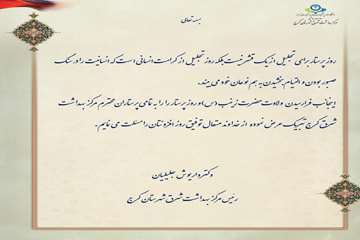 بسمه تعالی
روز پرستار برای تجلیل از یک قشر نیست بلکه روز تجلیل از کرامت انسانی است که انسانیت را در سنگ
صبور بودن و التیام بخشیدن به هم نوعان خود می بیند.
اینجانب فرارسیدن ولادت حضرت زینب (س) و روز پرستار را به تمامی پرستاران محترم مرکز بهداشت
شرق کرج تبریک عرض نموده و از خداوند متعال توفیق روز افزونتان را مسئلت می نمایم.
دکتر داریوش جلیلیان
رئیس مرکز بهداشت شرق شهرستان کرج